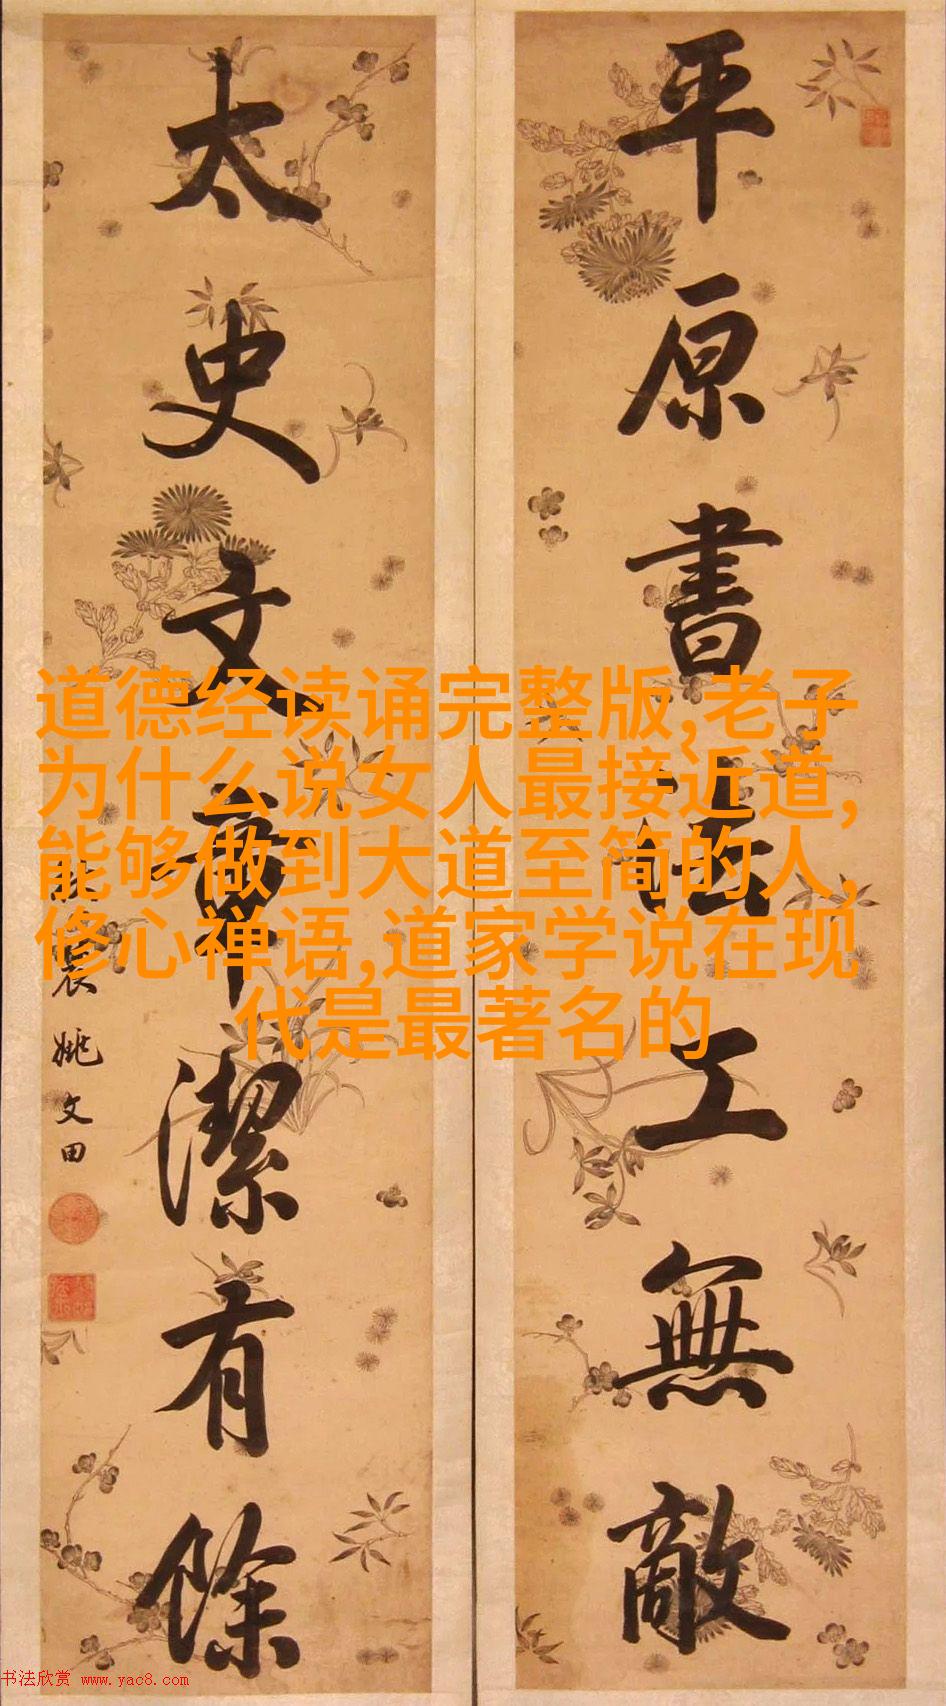 平原書法工無敵
太史文章潔有餘
姚文田
道德经读诵完整版,老子
为什么说女人最接近道,
能够做到大道至简的人,
修心禅语,道家学说在现
代是最著名的
书法欣赏 www.yac8.com